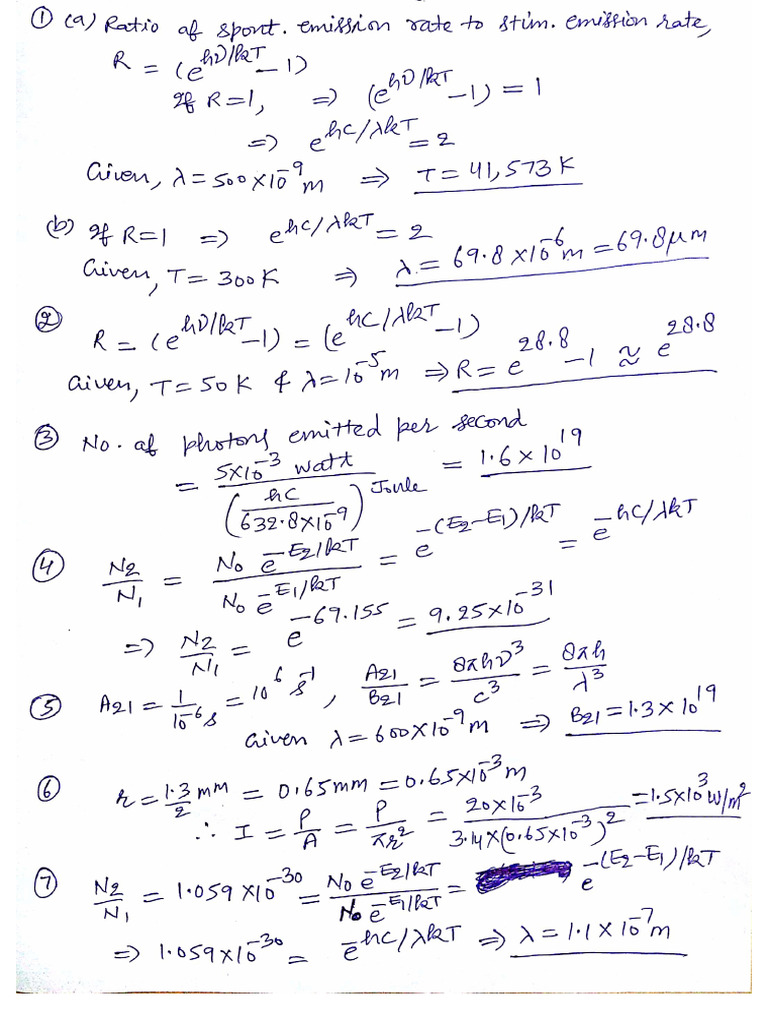 ① (a) Ratio of spont. emission rate to stim. emission rate,
R = (e^{hν/kT} − 1)
If R=1, ⇒ (e^{hν/kT} − 1) = 1
⇒ e^{hc/λkT} = 2
Given, λ = 500×10^{-9} m ⇒ T = 41,573 K
(b) If R=1 ⇒ e^{hc/λkT} = 2
Given, T = 300K ⇒ λ = 69.8 ×10^{-6} m = 69.8 μm
② R = (e^{hν/kT} − 1) = (e^{hc/λkT} − 1)
Given, T = 50K & λ = 10^{-5} m ⇒ R = e^{28.8} − 1 ≈ e^{28.8}
③ No. of photons emitted per second
= 5×10^{-3} watt / (hc / 632.8×10^{-9}) Joule = 1.6 × 10^{19}
④ N2/N1 = N0 e^{-E2/kT} / N0 e^{-E1/kT} = e^{-(E2−E1)/kT} = e^{-hc/λkT}
⇒ N2/N1 = e^{-69.155} = 9.25×10^{-31}
⑤ A21 = 1/10^{-6}s = 10^{6} s^{-1}, A21/B21 = 8πhν^{3}/c^{3} = 8πh/λ^{3}
Given λ = 600×10^{-9} m ⇒ B21 = 1.3 × 10^{19}
⑥ r = 1.3/2 mm = 0.65mm = 0.65×10^{-3} m
∴ I = P/A = P/πr^{2} = 20×10^{-3} / 3.14×(0.65×10^{-3})^{2} = 1.5×10^{3} W/m^{2}
⑦ N2/N1 = 1.059 ×10^{-30} = N0 e^{-E2/kT} / N0 e^{-E1/kT} = e^{-(E2−E1)/kT}
⇒ 1.059×10^{-30} = e^{-hc/λkT} ⇒ λ = 1.1 × 10^{-7} m